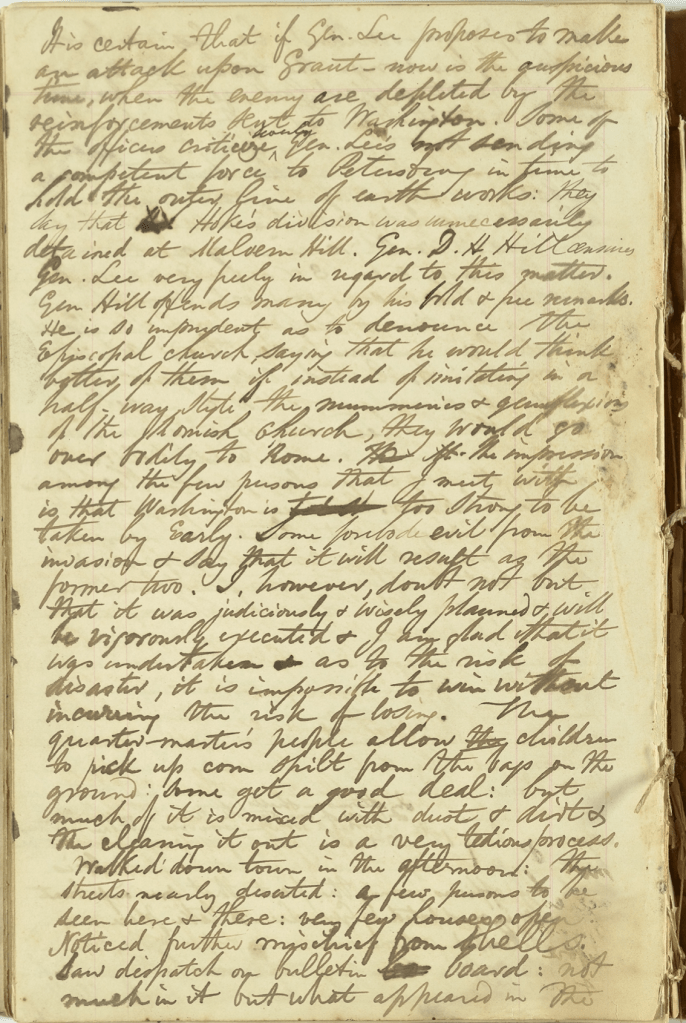 It is certain that if Gen. Lee proposes to make
an attack upon Grant - now is the auspicious
time, when the enemy are depleted by the
reinforcements sent to Washington. Some of
the officers criticize Gen. Lee's not sending
a competent force to Petersburg in time to
hold the outer line of earth works: they
say that Hoke's division was unnecessarily
detained at Malvern Hill. Gen. D. H. Hill censures
Gen. Lee very freely in regard to this matter.
Gen Hill offends many by his bold & free remarks.
He is so imprudent as to denounce the
Episcopal church, saying that he would think
better of them if instead of imitating in a
half-way style the mummeries & genuflexions
of the Romish Church, they would go
over bodily to Rome. The impression
among the few persons that I meet with
is that Washington is too strong to be
taken by Early. Some forebode evil from the
invasion & say that it will result as the
former two. I, however, doubt not but
that it was judiciously & wisely planned & will
be vigorously executed & I am glad that it
was undertaken & as to the risk of
disaster, it is impossible to win without
incurring the risk of losing. The
quarter-master's people allow the children
to pick up corn spilt from the bags on the
ground: some get a good deal: but
much of it is mixed with dust & dirt &
the cleaning it out is a very tedious process.
Walked down town in the afternoon: the
streets nearly deserted: a few persons to be
seen here & there: very few houses open.
Noticed further mischief from shells.
Saw dispatch on bulletin board: not
much in it but what appeared in the